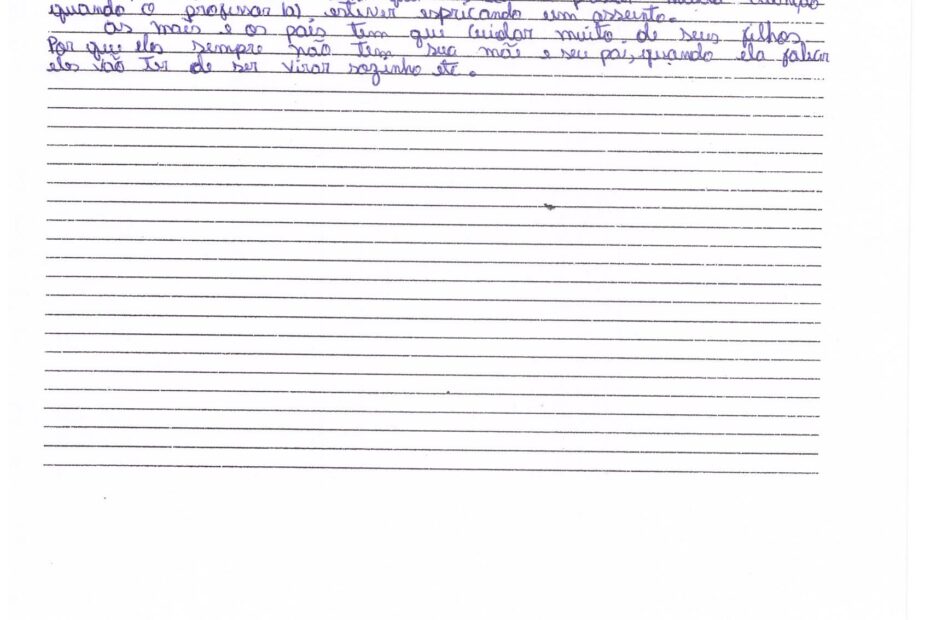 quando o professor (a), estiver espricando um asseinto.
as mães e os pais tem que cuidar muito de seus filhos,
Por que eles sempre não têm sua mãe e seu pai, quando ela falicer
eles vão ter de ser virar sozinho etc.